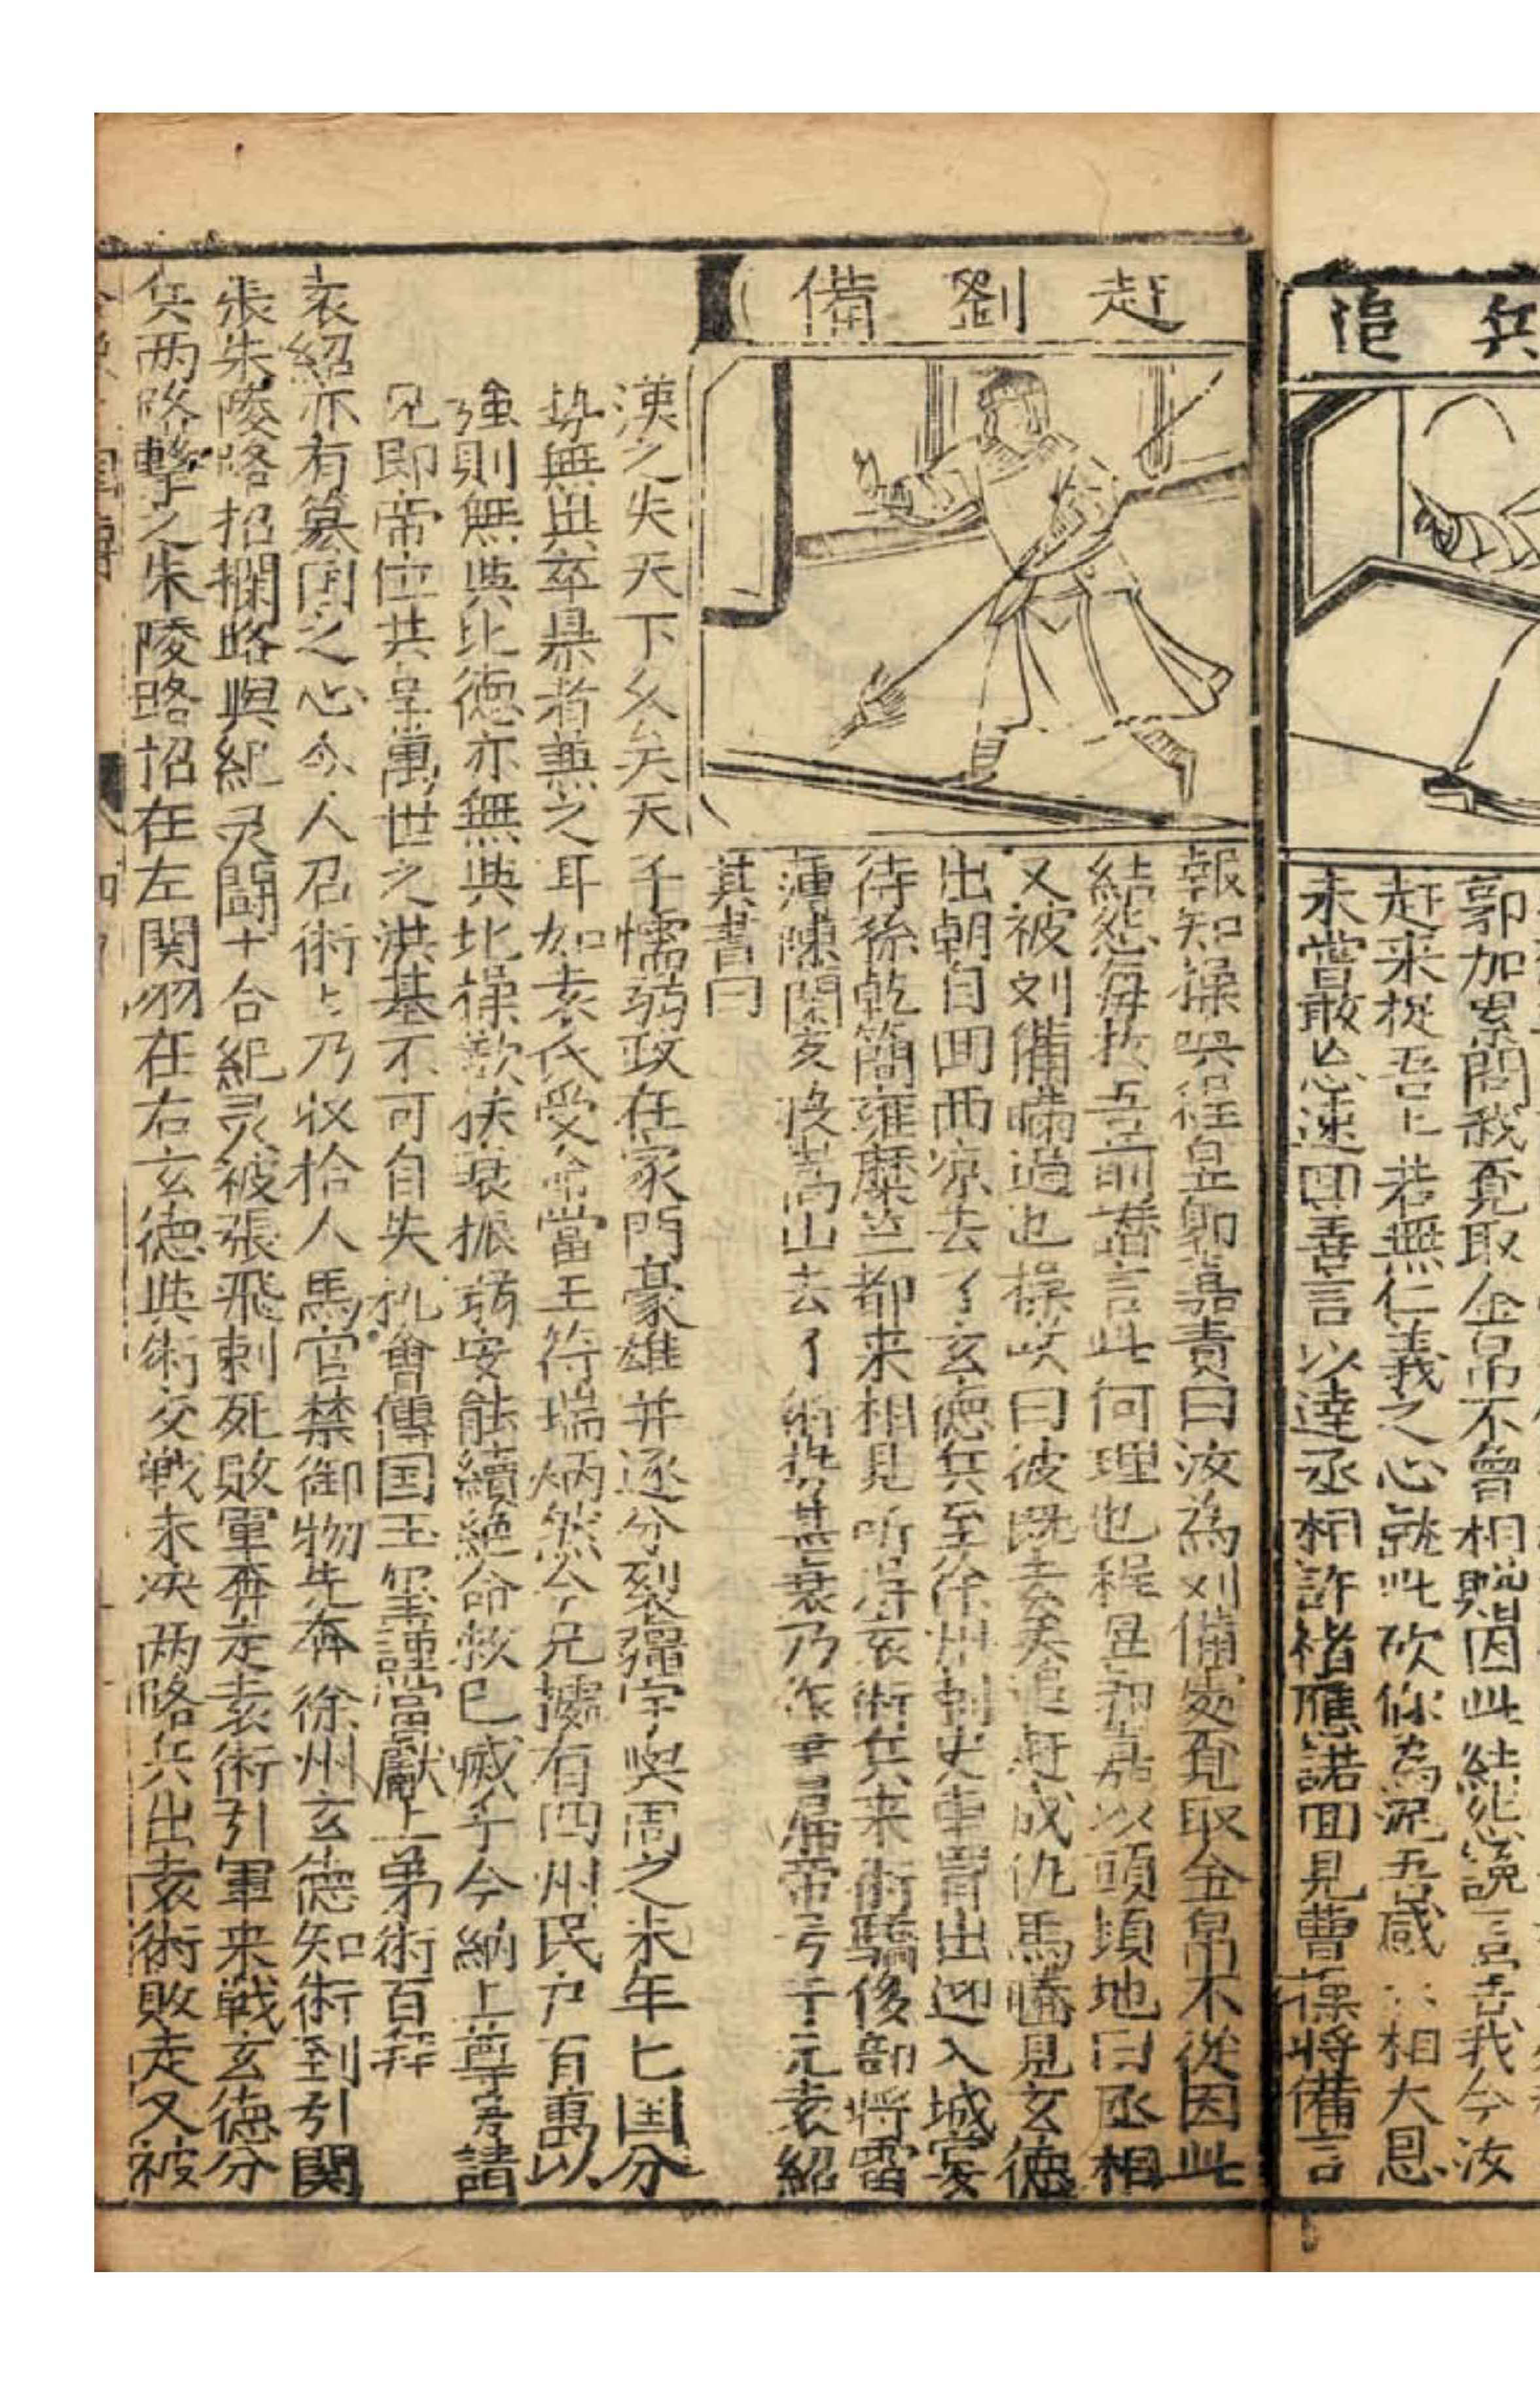 兵追
郭加累問我覓取金帛不曾相賜因此結怨讒言吾我今汝
赶来捉吾上若無仁義之心就此砍你為泥吾感丞相大恩
未嘗敢忘速回善言以達丞相許褚應諾回見曹操將備言
赶劉備
報知操喚程昱郭嘉責曰汝為刘備處覓取金帛不從因此
結怨每於吾前譖言此何理也程昱郭嘉以頭頓地曰丞相
又被刘備瞞過也操笑曰彼既去矣追赶成仇馬騰見玄德
出朝自回西凉去了玄德兵至徐州刺史車冑出迎入城宴
待孫乾簡雍糜竺都来相見听得袁術兵来術驕後部將雷
薄陳闌交投嵩山去了術勢甚衰乃作書歸帝号于元袁紹
其書曰
漢之失天下久矣天子懦弱政在家門豪雄并逐分裂疆宇與周之末年七国分
势無異卒果者兼之耳如袁氏受命當王符瑞炳然今兄據有四州民户百萬以
強則無與比德亦無與比操欲扶衰振弱安能續絶命救已滅乎今納上尊号請
兄即帝位共享萬世之洪基不可自失机會傳国玉璽謹當獻上弟術百拜
袁紹亦有篡国之心令人召術上乃收拾人馬官禁御物先奔徐州玄德知術到引関
張朱陵路招攔路與紀灵闘十合紀灵被張飛刺死敗軍奔走袁術引軍来戰玄德分
兵两路擊之朱陵路招在左関羽在右玄德與術交戰未决两路兵出袁術敗走又被